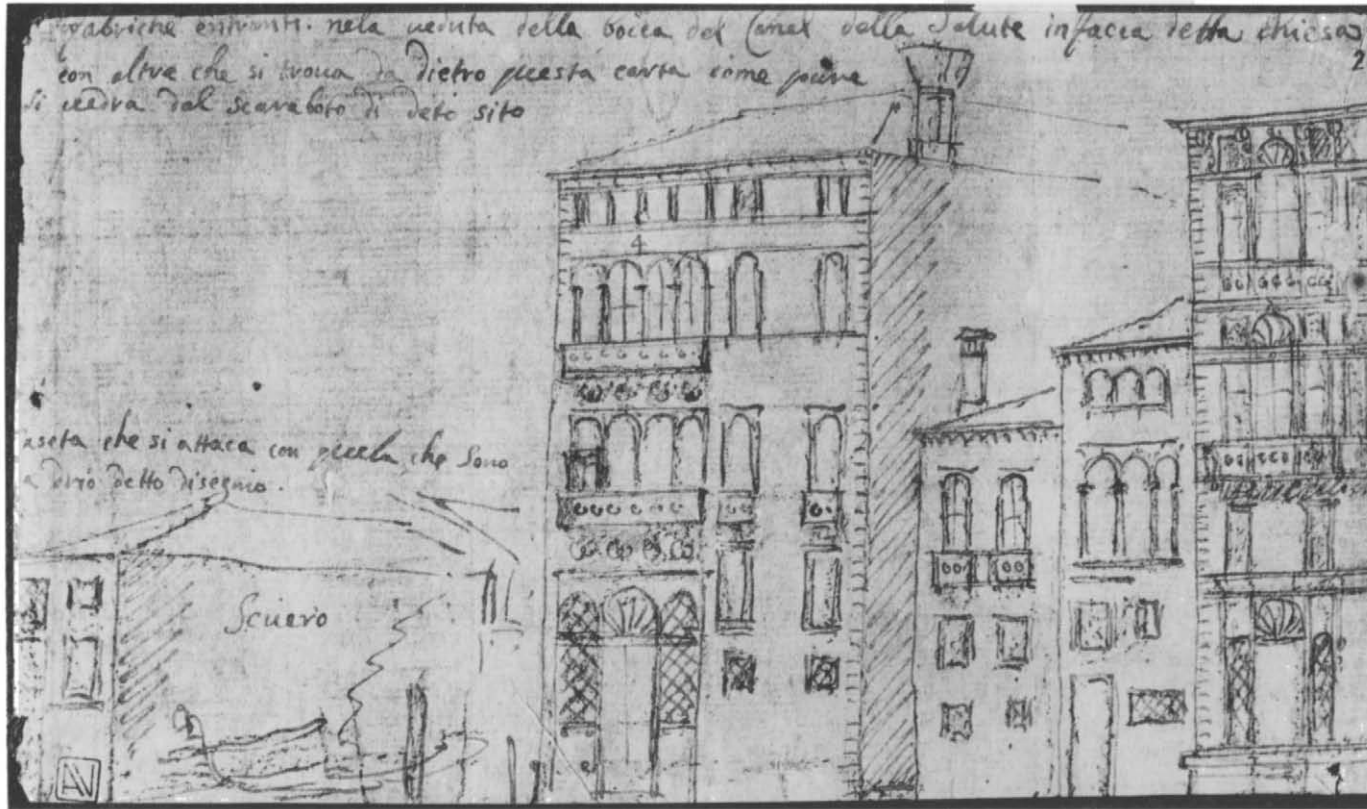 fabriche entranti. nela veduta della bocca del Canal della Salute infacia detta chiesa
2
con altre che si trova da dietro questa carta come pure
si vedra dal scaraboto di deto sito
4
che si attaca con quela che sono
detto disegnio.
Scuero
AV